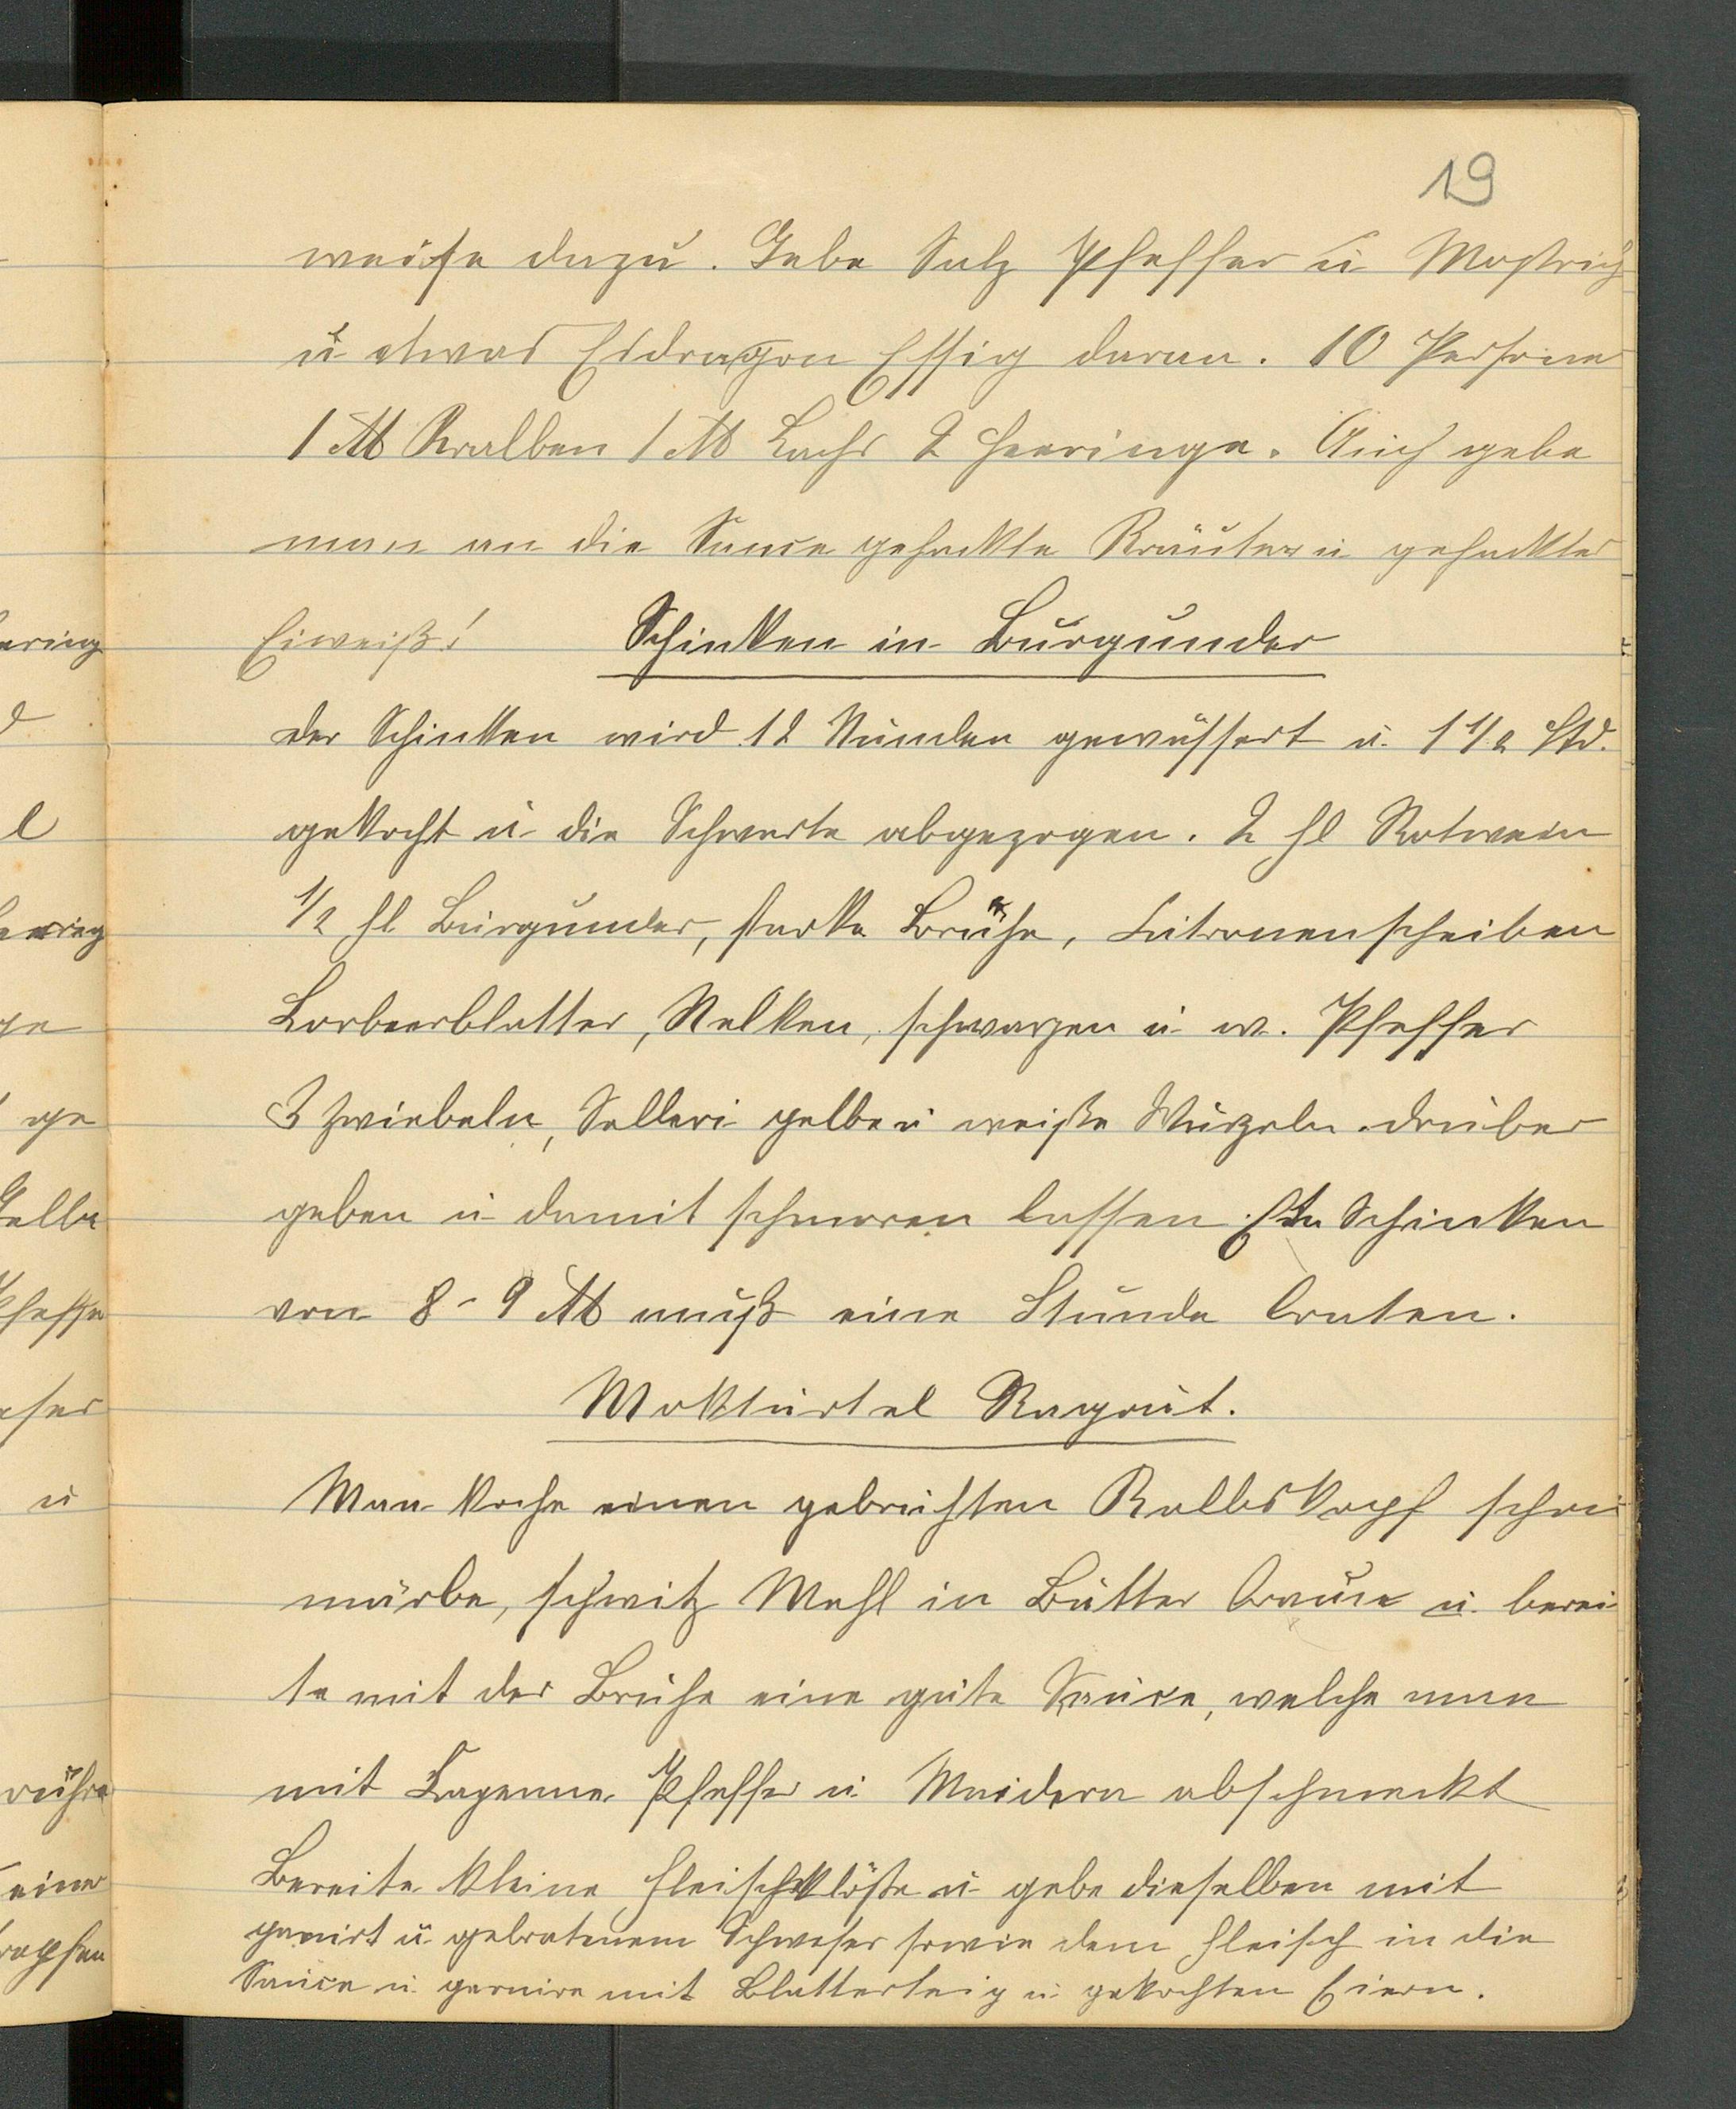 19
weise dazu. Gebe Salz Pfeffer u Mostrich
u etwas Esdragon Essig daran. 10 Persone
1 ℔ Krabben 1 ℔ Lachs 2 Heeringe. Auch gebe
man an die Sauce gehackte Kräuter u gehacktes
Eiweiß!
Schinken in Burgunder
der Schinken wird 12 Stunden gewässert u. 1 1/2 Std.
gekocht u die Schwarte abgezogen. 2 fl Rotwein
1/2 fl Burgunder, starke Brühe, Citronenscheiben
Lorbeerblatter, Nelken, schwarzen u w. Pfeffer
3 Zwiebeln, Selleri gelbe u weiße Wurzeln drüber
geben u damit schmoren lassen. Ein Schinken
von 8-9 ℔ muß eine Stunde braten.
Mokturtel Ragout.
Man koche einen gebrühten Kalbskopf schön
mürbe, schwitz Mehl in Butter braun u. berei-
te mit der Brühe eine gute Sauce, welche man
mit Cayenne Pfeffer u Maidera abschmeckt
Bereite kleine Fleischklöße u gebe dieselben mit
garnirt u gebratenem Schweser sowie dem Fleisch in die
Sauce u garnire mit Blatterteig u gekochten Eiern.